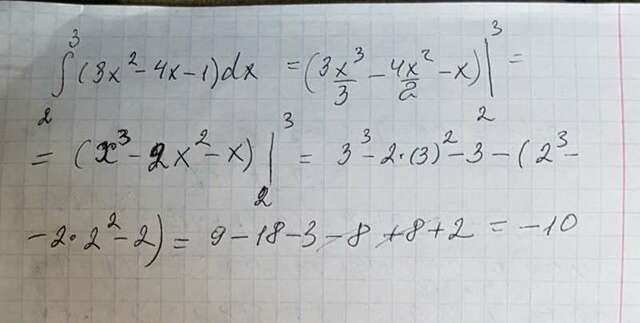 ∫₂³ (3x² - 4x - 1) dx = (3x³/3 - 4x²/2 - x) |₂³ =
= (x³ - 2x² - x) |₂³ = 3³ - 2·(3)² - 3 - (2³ -
- 2·2² - 2) = 9 - 18 - 3 - 8 + 8 + 2 = -10